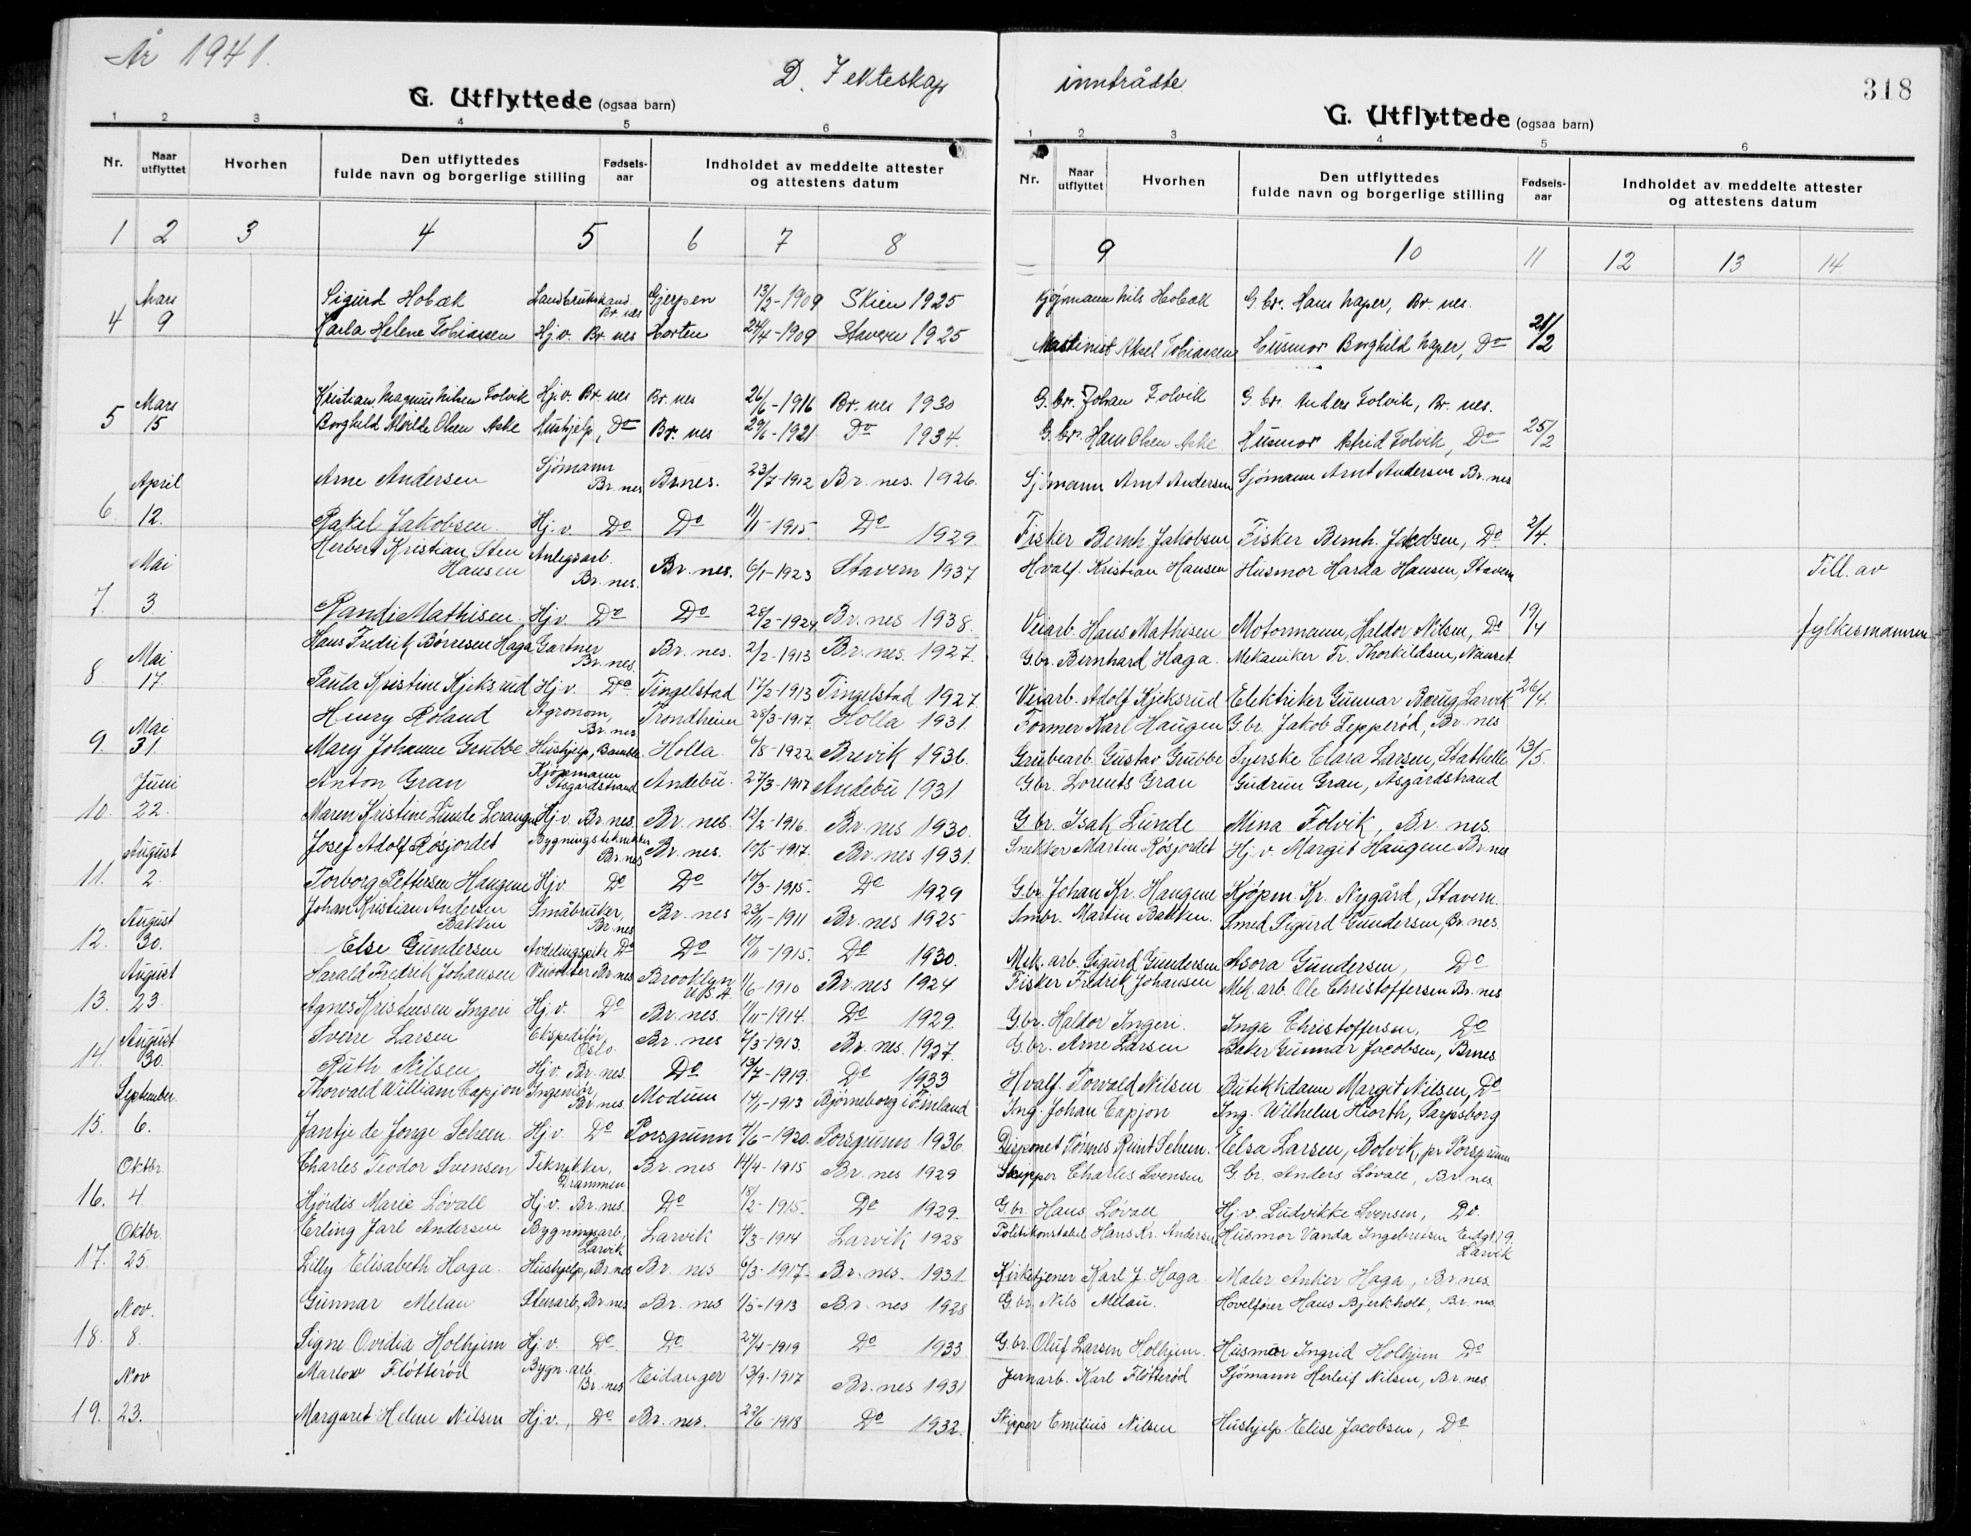 År 1941.
D. I ekteskap inntrådte
318
G. Utflyttede (ogsaa barn)
G. Utflyttede (ogsaa barn)
1 2 3 4 5 6
1 2 3 4 5 6
Nr. Naar utflyttet Hvorhen Den utflyttedes fulde navn og borgerlige stilling Fødsels-aar Indholdet av meddelte attester og attestens datum
Nr. Naar utflyttet Hvorhen Den utflyttedes fulde navn og borgerlige stilling Fødsels-aar Indholdet av meddelte attester og attestens datum
1 2 3 4 5 6 7 8 9 10 11 12 13 14
Mars Sigurd Hobæk Landbrukskand. Br. nes Gjerpen 13/2-1909 Skien 1925 Nils Hobæk G.br. Hans Naper, Br. nes.
4 9 Karla Helene Tobiassen Hj.v. Br. nes Horten 24/4-1909 Stavern 1925 Maskinist Aksel Tobiassen Husmor Borghild Naper, Do 21/2
Mars Kristian Magnus Nilsen Folvik Hj.v. Br. nes Br. nes 26/6-1916 Br. nes 1930 G.br. Johan Folvik G.br. Anders Folvik, Br. nes.
5 15 Borghild Alvilde Olsen Aske Hushjelp, Do Br. nes 29/6-1921 Do 1934. G.br. Hans Olsen Aske Husmor Astrid Folvik, Do 25/2
April Arne Andersen Sjømann Br. nes Br.nes. 23/7-1912 Br. nes. 1926. Sjømann Arnt Andersen Sjømann Arnt Andersen Br. nes
6. 12. Rakel Jakobsen. Hj.v. Do Do 11/1-1915 Do 1929 Fisker Bernh. Jakobsen Fisker Bernh. Jakobsen, Do 2/4.
Mai Herbert Kristian Sten Hansen Anlegsarb. Br. nes. Br. nes. 6/1-1923 Stavern 1937 Hvalf. Kristian Hansen Husmor Harda Hansen, Stavern Till. av
7. 3 Randi Mathisen. Hj.v. Do Do 28/2-1924 Br. nes 1938. Veiarb. Hans Mathisen Motormann, Haldor Nilsen, Do 19/4 fylkesmannen
Mai Hans Fredrik Børresen Haga Gartner Br. nes. Br. nes. 2/2-1913 Br. nes. 1927. G.br. Bernhard Haga. Mekaniker Fr. Thorkildsen, Nanset.
8 17. Paula Kristine Kjeksrud Hj.v. Do Tingelstad 17/2-1913 Tingelstad 1927 Veiarb. Adolf Kjeksrud Elektriker Gunnar Larvik 26/4.
Mai Henry Roland Agronom, Br. nes Trondheim 28/3-1917. Holla 1931. Former Karl Haugen G.br. Jakob Lepperød, Br. nes
9. 31. Mary Johanne Grubbe Hushjelp, Bamble Holla 6/8-1922 Brevik 1936. Grubearb. Gustav Grubbe Syerske Clara Larsen, Stathelle 13/5.
Juni Anton Gran Kjøpmann Åsgårdstrand Andebu. 27/3-1917 Andebu 1931 G.br. Lorents Gran Gudrun Gran, Åsgårdstrand
10. 22. Maren Kristine Lunde Hj.v. Br. nes. Br. nes. 12/2-1916. Br. nes 1930. G.br. Isak Lunde Mina Folvik, Br. nes.
August Josef Adolf Røsjordet Bygningstekniker Br. nes Br. nes. 10/5-1917. Br. nes 1931. Snekker Martin Røsjordet Hj.v. Margit Haugene Br. nes
11. 2. Torborg Pettersen Haugene Hj.v. Do Do 17/3-1915. Do 1929 G.br. Johan Kr. Haugene Kjøpm. Kr. Nygård, Stavern.
August Johan Kristian Andersen Bakken Småbruker, Br. nes Br. nes 23/11-1911 Br. nes 1925 Smbr. Martin Bakken. Smed Sigurd Gundersen, Br. nes.
12. 30. Else Gundersen Do Do 17/11-1915. Do 1930. Mek. arb. Sigurd Gundersen Asora Gundersen, Do
August Harald Fredrik Johansen Br. nes Brooklyn U.S.A 1/6-1910 Br. nes 1924 Fisker Fredrik Johansen Mek. arb. Ole Christoffersen Br. nes
13. 23. Agnes Kristensen Ingeri Hj.v. Do Br. nes. 1/11-1914. Do 1929. G.br. Haldor Ingeri. Inga Christoffersen, Do
August Sverre Larsen Ekspeditør Oslo. Br. nes 7/3-1913. Br. nes. 1927. G.br. Arne Larsen Baker Gunnar Jacobsen, Br.nes
14. 30. Ruth Nilsen Hj.v. Br. nes. Do 13/7-1919. Do 1933 Hvalf. Torvald Nilsen Butikkdame Margit Nilsen, Do
September Thorvald William Capjon Ingeniør Br. nes. Modum 14/1-1913 Bjørneborg i Finland Ing. Johan Capjon Ing. Wilhelm Hiorth, Sarpsborg
15. 6. Jantje de Jonge Scheen. Hj.v. Do Porsgrunn 7/6-1920. Porsgrunn 1936 Disponet Scheen. Elsa Larsen, Bolvik, pr Porsgrunn
Oktbr. Charles Teodor Svensen Teknikker, Drammen Br. nes 14/4-1915 Br. nes 1929 Skipper Charles Svensen G.br. Anders Løvall, Br. nes.
16. 4. Hjørdis Marie Løvall Hj.v. Br. nes. Do 18/2-1915. Do 1929. G.br. Hans Løvall Hj.v. Ludvikke Svensen, Do.
Oktbr. Erling Jarl Andersen Bygningsarb, Larvik Larvik 4/3-1914 Larvik 1928 Politikonstabel Hans Kr. Andersen Husmor Vanda Ingebretsen 19 Larvik
17. 25. Lilly Elisabeth Haga. Hushjelp, Br. nes Br. nes 6/3-1917. Br. nes. 1931. Kirketjener Karl J. Haga Maler Anker Haga, Br. nes.
Nov. Gunnar Melau Stenarb, Br. nes Br. nes 1/5-1913 Br. nes 1928 G.br. Nils Melau. Hans Bjerkholt, Br. nes.
18. 8. Signe Ovidia Holhjem Hj.v. Do Do 27/4-1919 Do 1933 G.br. Oluf Larsen Holhjem. Husmor Ingrid Holhjem Do
Nov Marlow Fløtterød Bygn. arb. Br. nes Eidanger 13/9-1917 Br. nes 1931 Jernarb. Karl Fløtterød Sjømann Herleif Nilsen, Br. nes.
19. 23. Margaret Helene Nilsen Hj.v., Do Br. nes. 22/6-1918 Do 1932. Skipper Emilius Nilsen Hushjelp Elise Jacobsen, Do